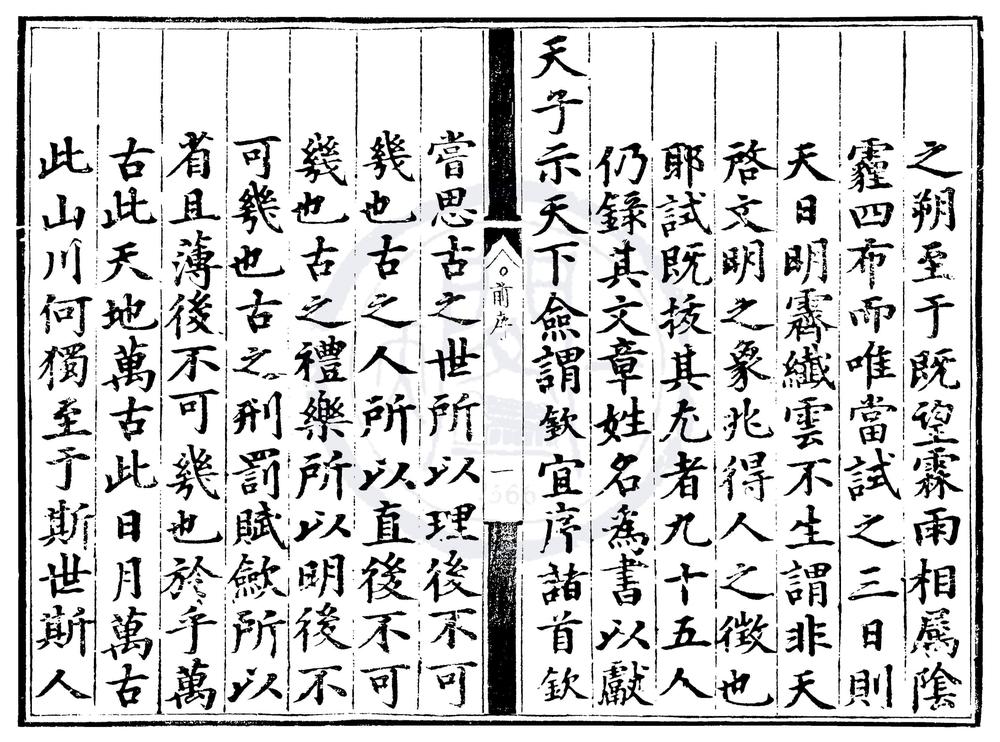 之朔至于既望霖雨相屬陰
霾四布而唯當試之三日則
天日明霽纖雲不生謂非天
啓文明之象兆得人之徴也
耶試既抜其尤者九十五人
仍錄其文章姓名爲書以獻
天子示天下僉謂欽宜序諸首欽
前序
一
嘗思古之世所以理後不可
㡬也古之人所以直後不可
㡬也古之禮樂所以明後不
可㡬也古之刑罰賦歛所以
省且薄後不可㡬也於乎萬
古此天地萬古此日月萬古
此山川何獨至于斯世斯人